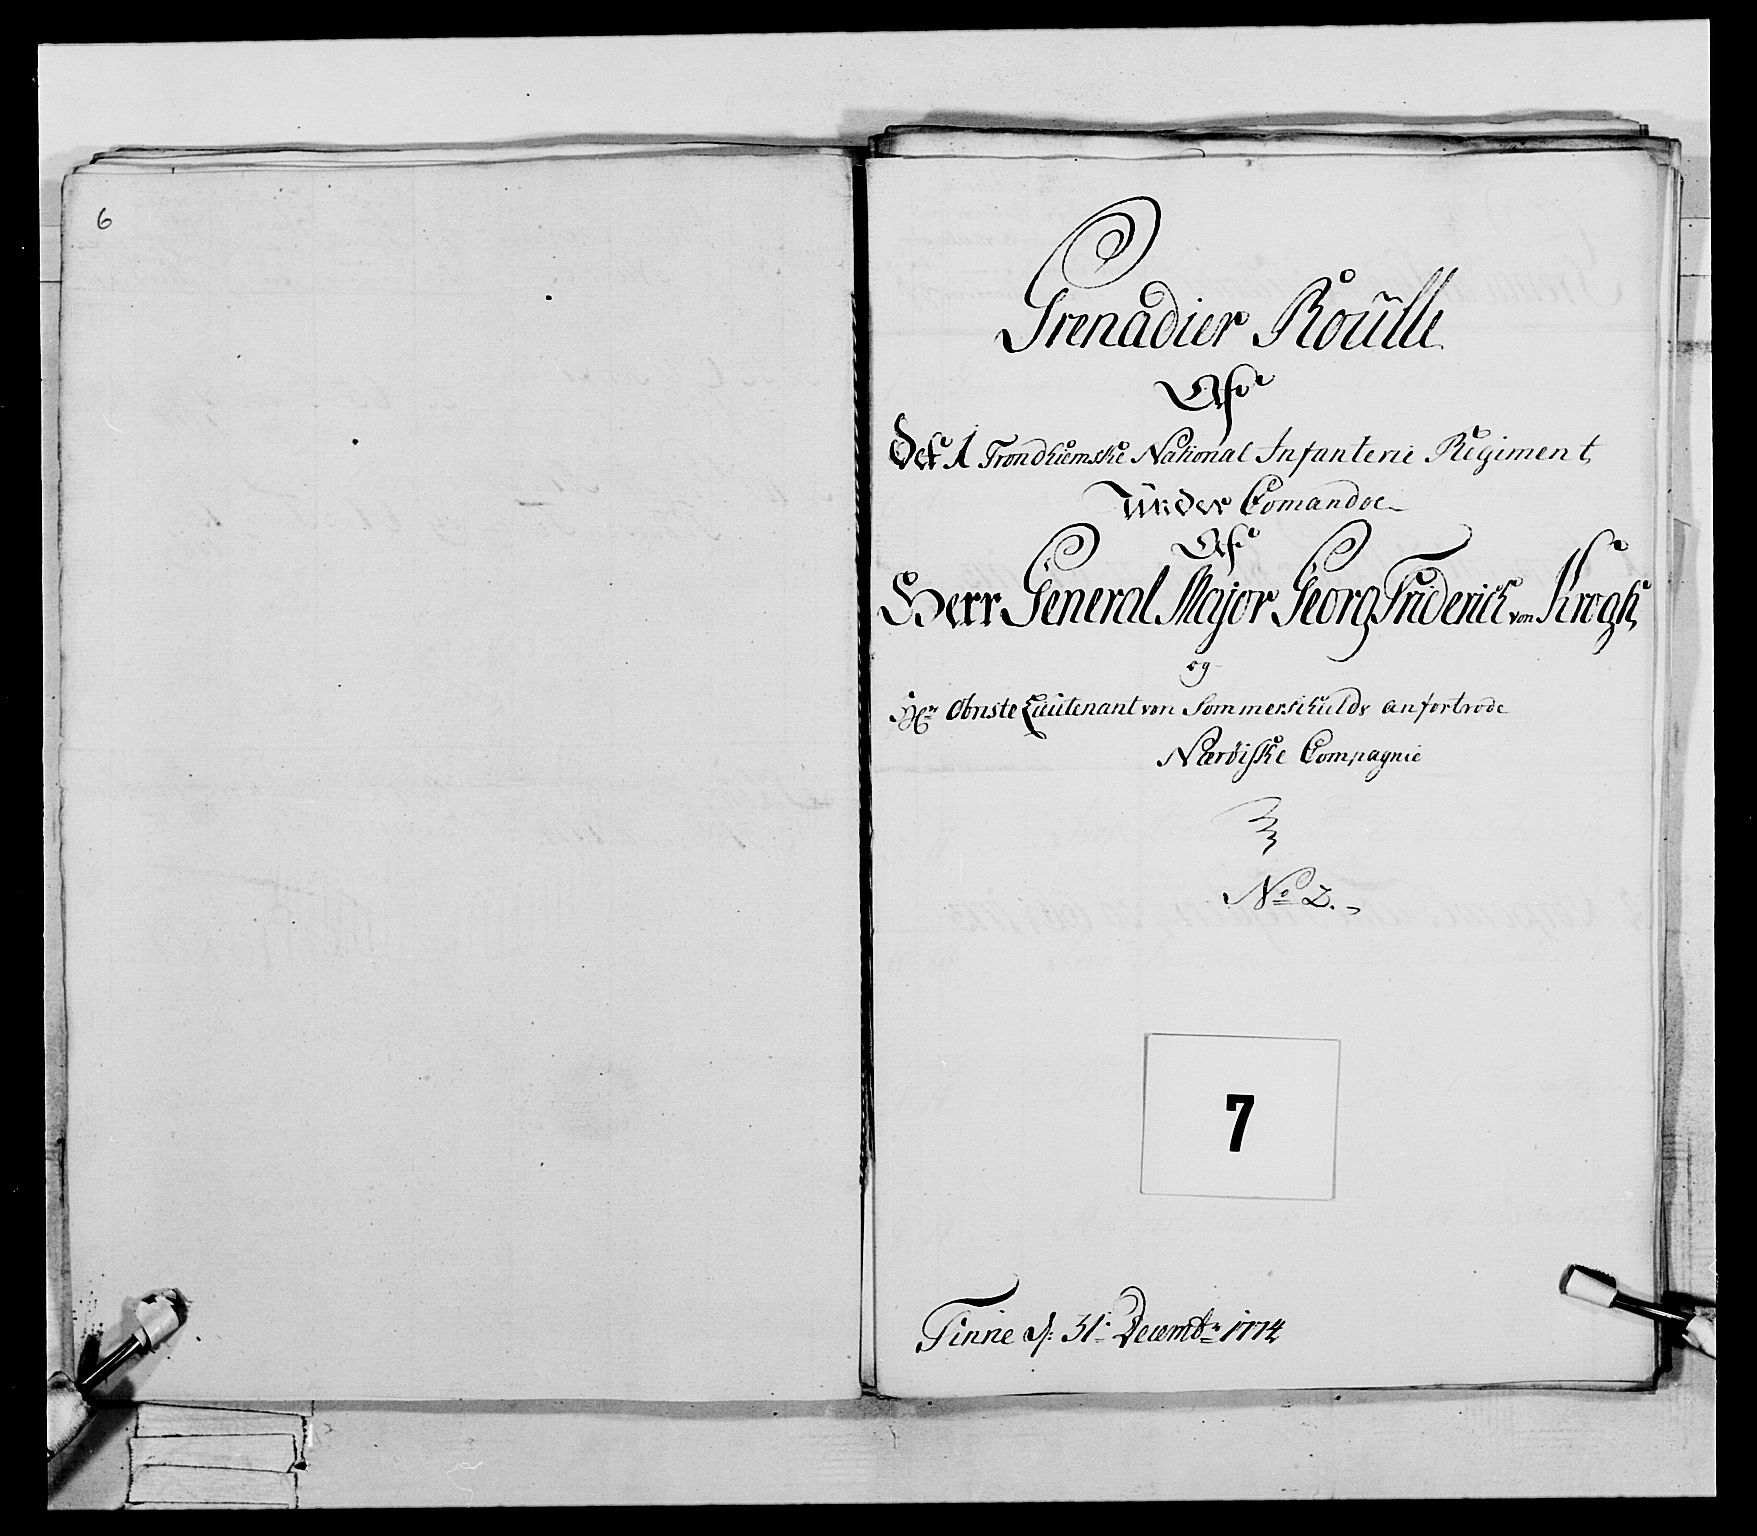 6
Grenadier Roülle
Af
Det 1 Trondhiemske National Infanterie Regiment
Ünder Comandoe
Af
Herr General Major Georg Friderich von Krogh,
og
Hr Obriste Lieutenant von Sommerschilds anfortrode
Nærøiske Compagnie
No 2.
7
Finne d: 31te Decembr 1774